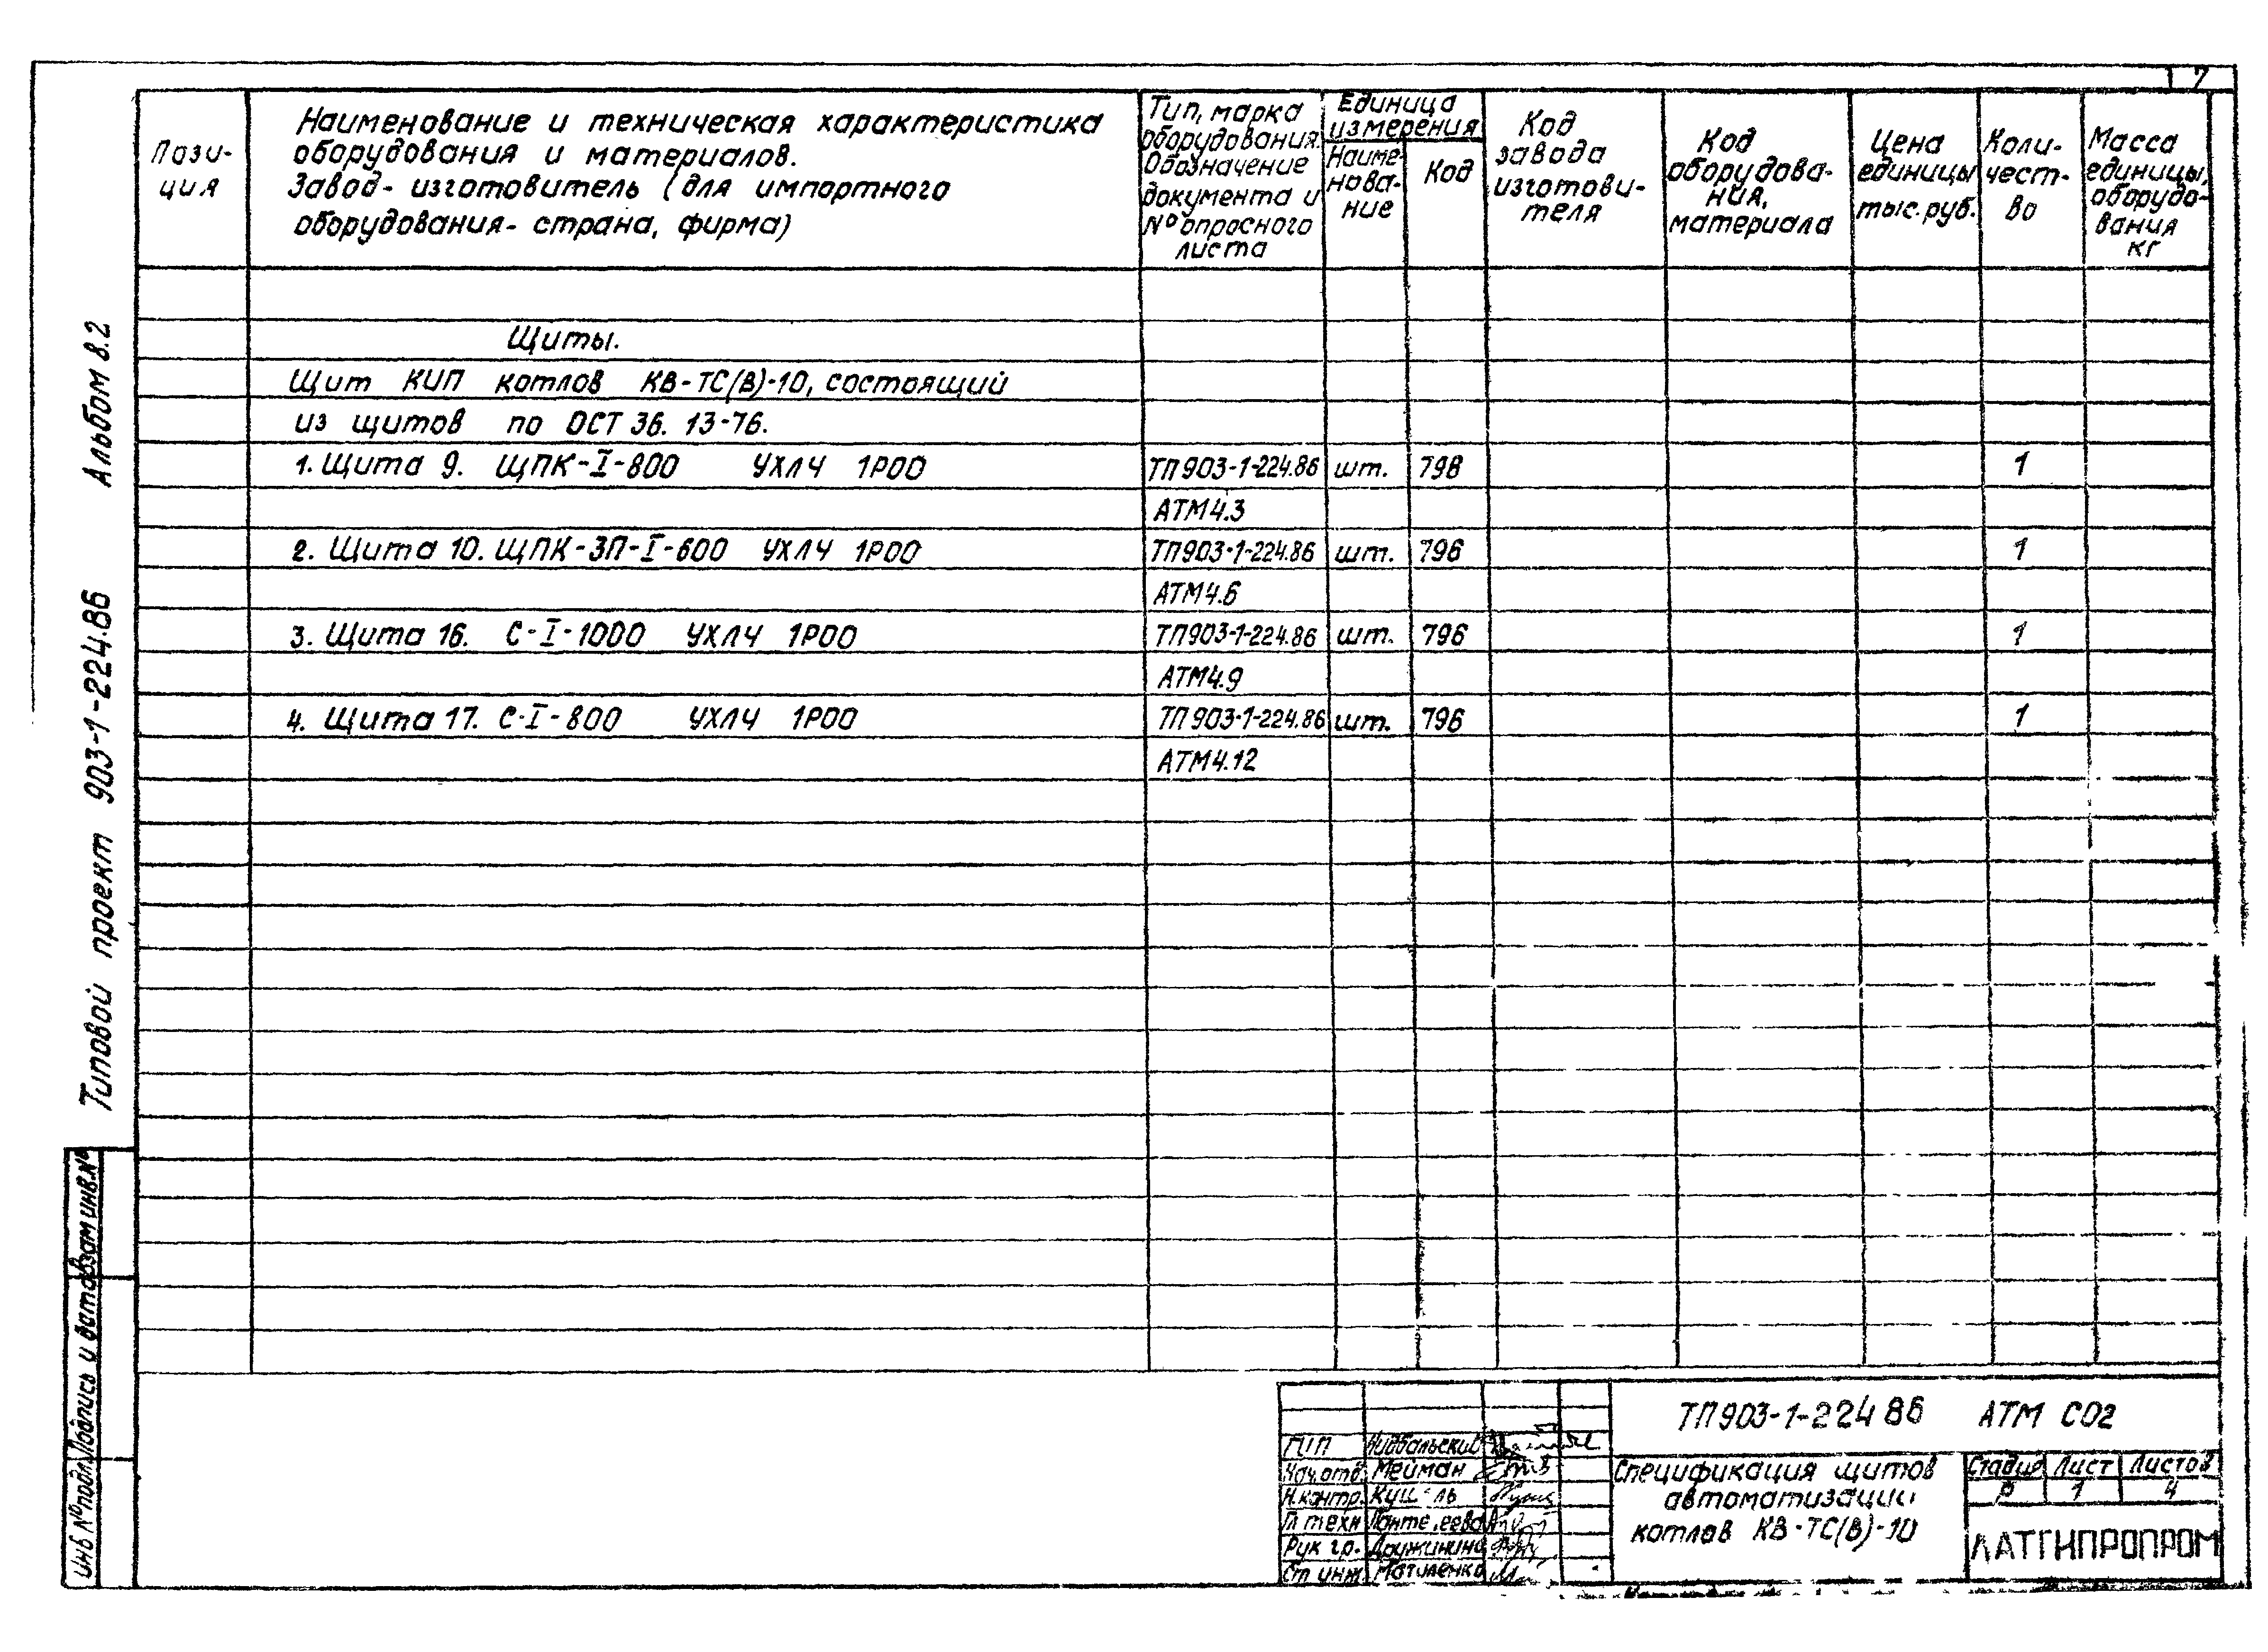 7
Пози-
ция
Наименование и техническая характеристика
оборудования и материалов.
Завод- изготовитель (для импортного
оборудования- страна, фирма)
Тип, марка
оборудования.
Обозначение
документа и
№ опросного
листа
Единица
измерения
Наиме-
нова-
ние
Код
Код
завода
изготови-
теля
Код
оборудова-
ния,
материала
Цена
единицы
тыс. руб.
Коли-
чест-
во
Масса
единицы,
оборудо-
вания
кг
Щиты.
Щит КИП котлов КВ-ТС(В)-10, состоящий
из щитов по ОСТ 36. 13-76.
1. Щита 9. ЩПК-I-800 УХЛ4 1Р00 ТП903-1-224.86 шт. 798 1
АТМ4.3
2. Щита 10. ЩПК-ЗП-I-600 УХЛ4 1Р00 ТП903-1-224.86 шт. 796 1
АТМ4.6
3. Щита 16. С-I-1000 УХЛ4 1Р00 ТП903-1-224.86 шт. 796 1
АТМ4.9
4. Щита 17. С-I-800 УХЛ4 1Р00 ТП903-1-224.86 шт. 796 1
АТМ4.12
Типовой проект 903-1-224.86 Альбом 8.2
Взам инв.№
Подпись и дата
Инв №подл.
ТП903-1-224 86 АТМ СО2
ГИП
Нач.отд. Мейман
Н.контр.
Гл техн
Рук гр. Дружинина
Ст инж
Спецификация щитов
автоматизации
котлов КВ-ТС(В)-10
Стадия Лист Листов
Р 1 4
ЛАТГИПРОПРОМ